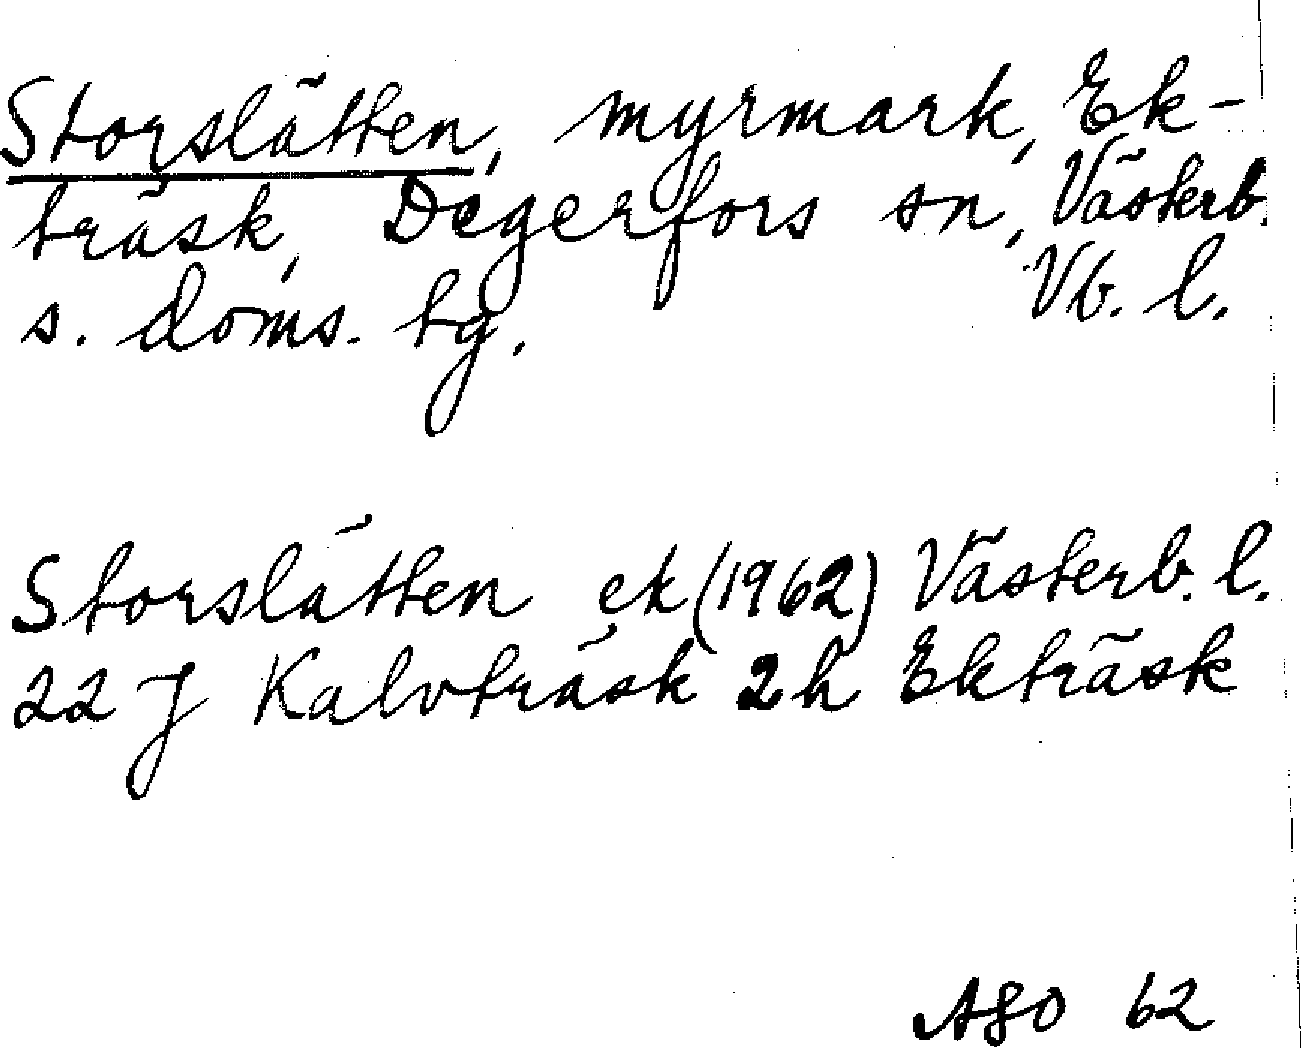 Storslätten, myrmark, Ek-
träsk, Degerfors sn, Västerb.
s. doms. tg. Vb. l.
Storslätten ek (1962) Västerb. l.
22 J Kalvträsk 2h Ekträsk
ASO 62